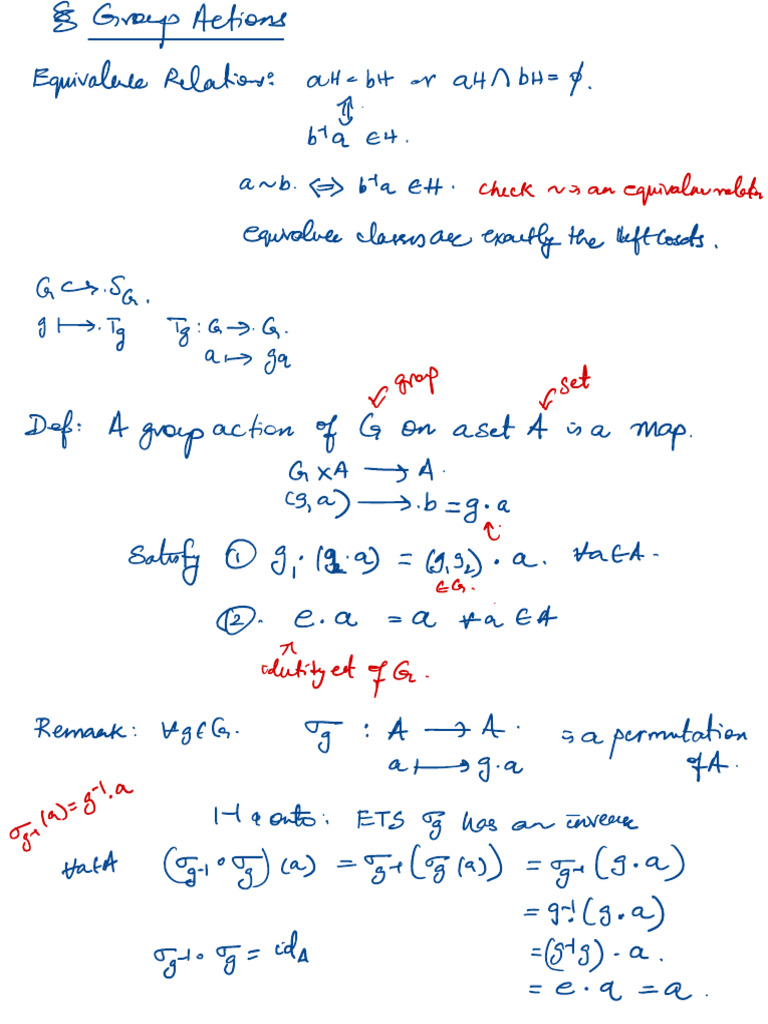 § Group Actions
Equivalence Relation: aH = bH or aH ∩ bH = ∅.
⇕
b⁻¹a ∈ H.
a ~ b. ⇔ b⁻¹a ∈ H. check ~ is an equivalence relation
equivalence classes are exactly the left cosets.
G ↪ S_G.
g ↦ T_g T_g : G → G.
a ↦ ga
group set
Def: A group action of G on a set A is a map.
G × A → A.
(g, a) → b = g · a
Satisfy ① g₁ · (g₂ · a) = (g₁ g₂) · a. ∀a ∈ A.
∈ G.
②. e . a = a ∀a ∈ A
identity elt of G.
Remark: ∀g ∈ G. σ_g : A → A. is a permutation
a ↦ g · a of A.
σ_g⁻¹(a) = g⁻¹. a
1-1 & onto: ETS σ_g has an inverse
∀a ∈ A (σ_g⁻¹ ∘ σ_g)(a) = σ_g⁻¹(σ_g(a)) = σ_g⁻¹(g . a)
= g⁻¹. (g . a)
σ_g⁻¹ ∘ σ_g = id_A = (g⁻¹g) . a.
= e . a = a.